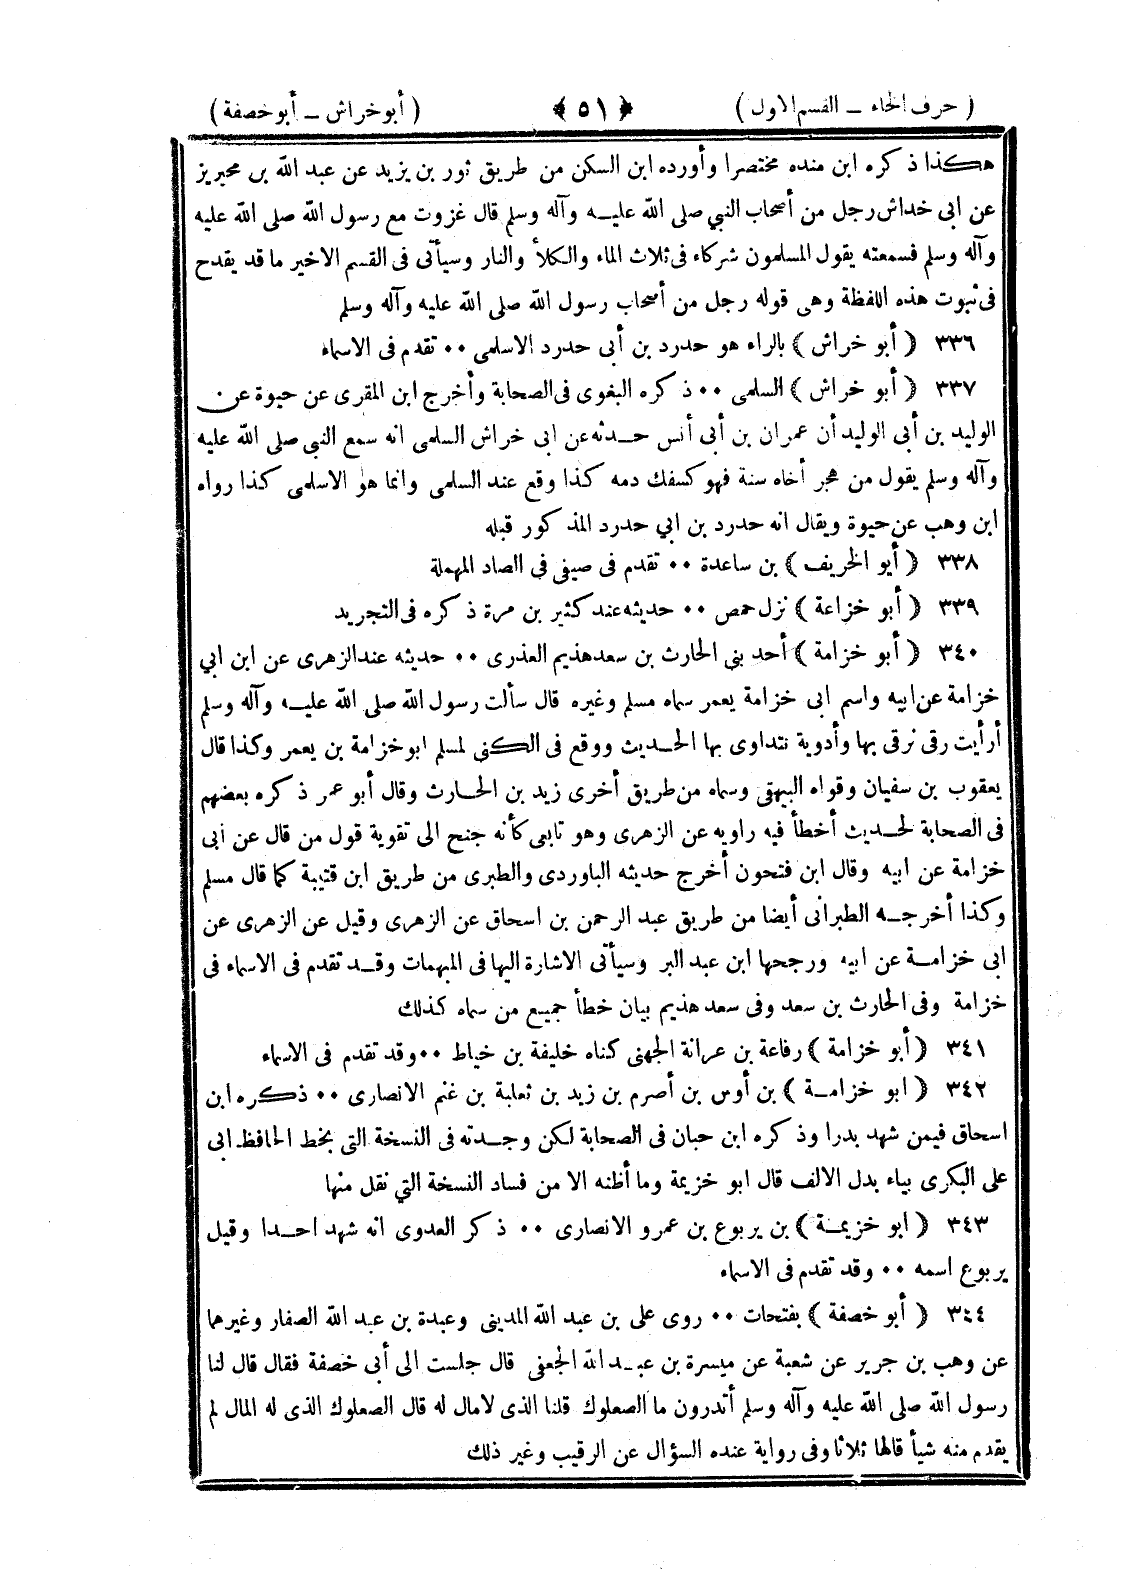 ( حرف الخاء ـ القسم الاول ) ﴿ ٥١ ﴾ ( أبو خراش ـ أبو خصفة )
هكذا ذكره ابن منده مختصرا وأورده ابن السكن من طريق ثور بن يزيد عن عبد الله بن محيريز
عن ابى خداش رجل من أصحاب النبي صلى الله عليه وآله وسلم قال غزوت مع رسول الله صلى الله عليه
وآله وسلم فسمعته يقول المسلمون شركاء فى ثلاث الماء والكلأ والنار وسيأتى فى القسم الاخير ما قد يقدح
فى ثبوت هذه اللفظة وهى قوله رجل من أصحاب رسول الله صلى الله عليه وآله وسلم
٣٣٦ ﴿ أبو خراش ﴾ بالراء هو حدرد بن أبى حدرد الاسلمى ٠٠ تقدم فى الاسماء
٣٣٧ ﴿ أبو خراش ﴾ السلمى ٠٠ ذكره البغوى فى الصحابة وأخرج ابن المقرى عن حيوة عن
الوليد بن أبى الوليد أن عمران بن أبى أنس حدثه عن ابى خراش السلمى انه سمع النبى صلى الله عليه
وآله وسلم يقول من هجر أخاه سنة فهو كسفك دمه كذا وقع عند السلمى وانما هو الاسلمى كذا رواه
ابن وهب عن حيوة ويقال انه حدرد بن ابي حدرد المذكور قبله
٣٣٨ ﴿ أبو الخريف ﴾ بن ساعدة ٠٠ تقدم فى صيفى فى الصاد المهملة
٣٣٩ ﴿ أبو خزاعة ﴾ نزل حمص ٠٠ حديثه عند كثير بن مرة ذكره فى التجريد
٣٤٠ ﴿ أبو خزامة ﴾ أحد بنى الحارث بن سعد هذيم العذرى ٠٠ حديثه عند الزهرى عن ابن ابي
خزامة عن ابيه واسم ابى خزامة يعمر سماه مسلم وغيره قال سألت رسول الله صلى الله عليه وآله وسلم
أرأيت رقى نرقى بها وأدوية نتداوى بها الحديث ووقع فى الكنى لمسلم ابو خزامة بن يعمر وكذا قال
يعقوب بن سفيان وقواه البيهقى وسماه من طريق أخرى زيد بن الحارث وقال أبو عمر ذكره بعضهم
فى الصحابة لحديث أخطأ فيه راويه عن الزهرى وهو تابعى كأنه جنح الى تقوية قول من قال عن ابى
خزامة عن ابيه وقال ابن فتحون أخرج حديثه الباوردى والطبرى من طريق ابن قتيبة كما قال مسلم
وكذا أخرجه الطبرانى أيضا من طريق عبد الرحمن بن اسحاق عن الزهرى وقيل عن الزهرى عن
ابى خزامة عن ابيه ورجحها ابن عبد البر وسيأتى الاشارة اليها فى المبهمات وقد تقدم فى الاسماء فى
خزامة وفى الحارث بن سعد وفى سعد هذيم بيان خطأ جميع من سماه كذلك
٣٤١ ﴿ أبو خزامة ﴾ رفاعة بن عرابة الجهنى كناه خليفة بن خياط ٠٠ وقد تقدم فى الاسماء
٣٤٢ ﴿ ابو خزامة ﴾ بن أوس بن أصرم بن زيد بن ثعلبة بن غنم الانصارى ٠٠ ذكره ابن
اسحاق فيمن شهد بدرا وذكره ابن حبان فى الصحابة لكن وجدته فى النسخة التى بخط الحافظ ابى
على البكرى بياء بدل الالف قال ابو خزيمة وما أظنه الا من فساد النسخة التي نقل منها
٣٤٣ ﴿ ابو خزيمة ﴾ بن يربوع بن عمرو الانصارى ٠٠ ذكر العدوى انه شهد احدا وقيل
يربوع اسمه ٠٠ وقد تقدم فى الاسماء
٣٤٤ ﴿ أبو خصفة ﴾ بفتحات ٠٠ روى على بن عبد الله المدينى وعبدة بن عبد الله الصفار وغيرهما
عن وهب بن جرير عن شعبة عن ميسرة بن عبد الله الجعفى قال جلست الى أبى خصفة فقال قال لنا
رسول الله صلى الله عليه وآله وسلم أتدرون ما الصعلوك قلنا الذى لا مال له قال الصعلوك الذى له المال لم
يقدم منه شيأ قالها ثلاثا وفى رواية عنده السؤال عن الرقيب وغير ذلك